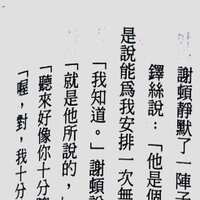 謝頓靜默了一陣子
鐸絲說:「他是個
是說能為我安排一次無
「我知道。」謝頓說
「就是他所說的,
「聽來好像你十分
「喔,對,我十分